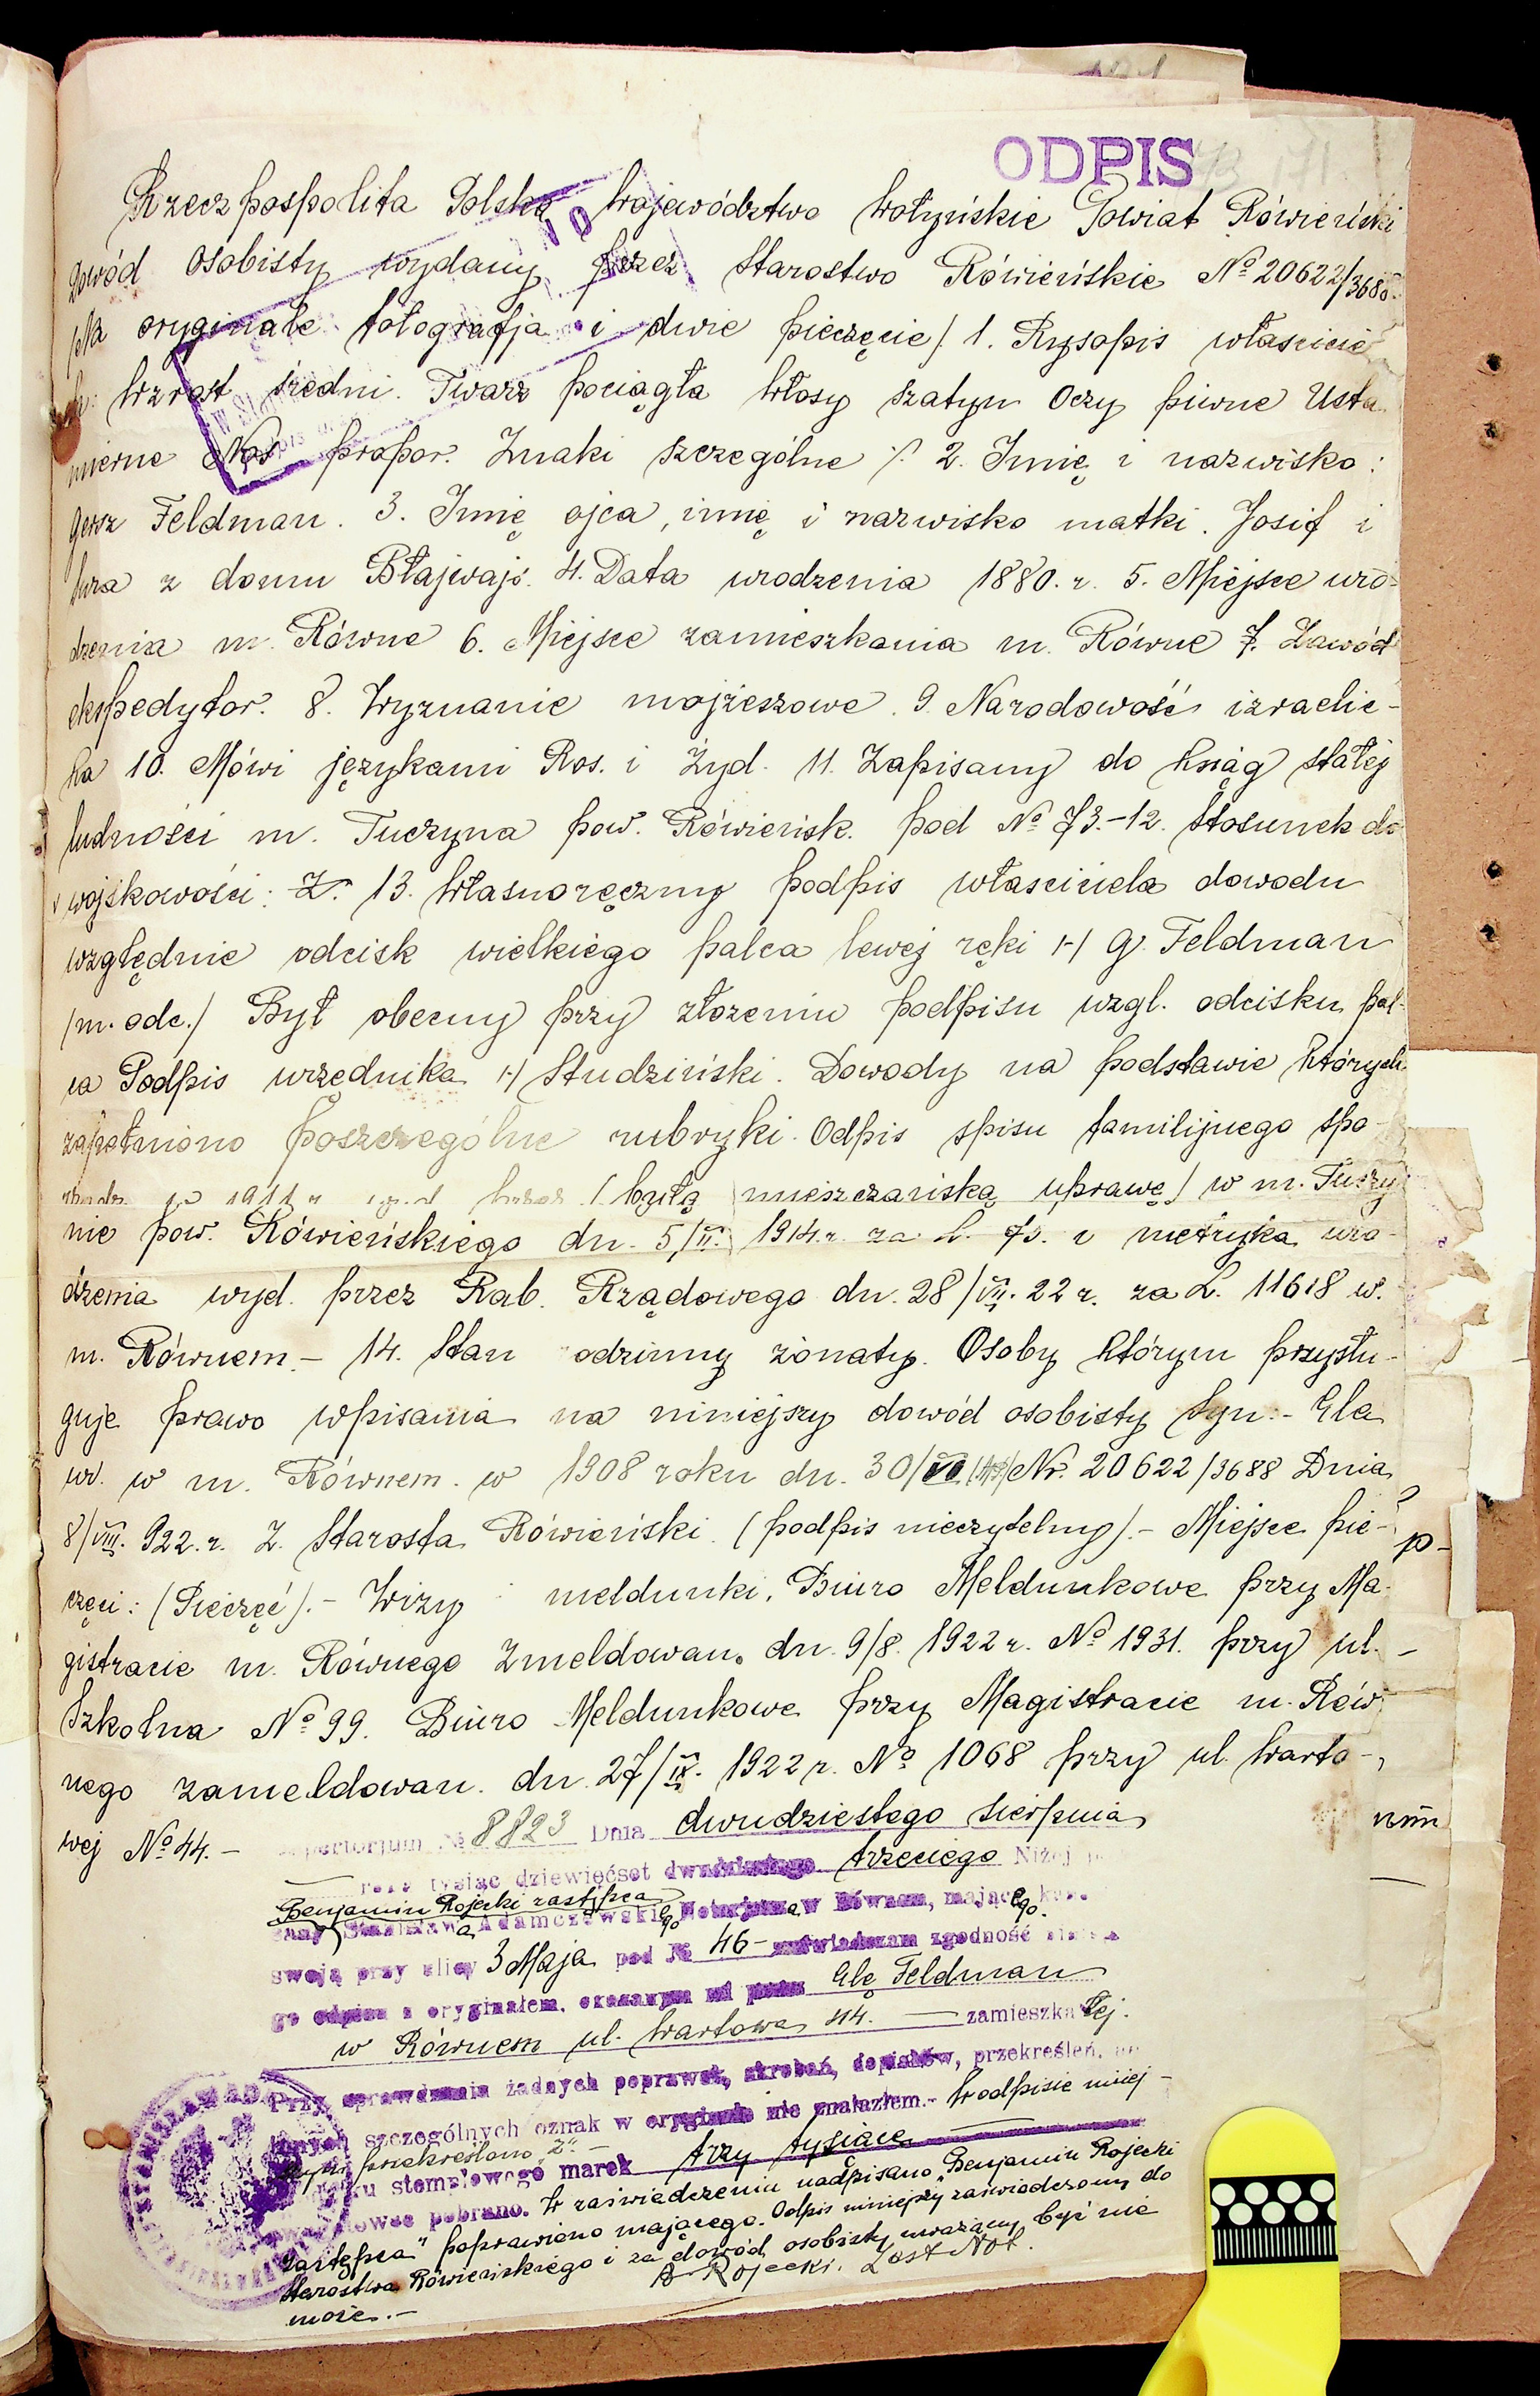 ODPIS
Rzeczpospolita Polska Województwo Wołyńskie Powiat Rówieński
Dowód osobisty wydany przez Starostwo Rówieńskie № 20622/3688
/Na oryginale fotografja i dwie pieczęcie/ 1. Rysopis właścicie
la: Wzrost średni. Twarz pociągła Włosy szatyn Oczy piwne Usta
mierne Nos propor. Znaki szczególne ./. 2. Imię i nazwisko:
Gersz Feldman. 3. Imię ojca, imię i nazwisko matki. Josif i
z domu Błajwajs. 4. Data urodzenia 1880. r. 5. Miejsce uro-
dzenia m. Równe 6. Miejsce zamieszkania m. Równe 7. Zawód
ekspedytor. 8. Wyznanie mojżeszowe. 9. Narodowość izraelic-
ka 10. Mówi językami Ros. i Żyd. 11. Zapisany do ksiąg stałej
ludności m. Tuczyna pow. Rówieńsk. pod № 73.-12. Stosunek do
wojskowości: Z. 13. Własnoręczny podpis właściciela dowodu
względnie odcisk wielkiego palca lewej ręki /-/ G. Feldman
/m. odc./ Był obecny przy złożeniu podpisu wzgl. odcisku pal-
ca Podpis urzędnika /-/ Studziński. Dowody na podstawie których
zapełniono poszczególne rubryki. Odpis spisu familijnego spo-
w 1911 r. przez (byłą mieszczańską uprawę) w m. Tuczy
nie pow. Rówieńskiego dn. 5/II. 1914. r. za L. 73. i metryka uro-
dzenia wyd. przez Rab. Rządowego dn. 28/VII. 22 r. za L. 11618 w.
m. Równem.- 14. Stan rodzinny żonaty. Osoby którym przysłu-
guje prawo wpisania na niniejszy dowód osobisty Syn:- Ela
ur. w m. Równem. w 1908 roku dn. 30/VI Nr. 20622/3688 Dnia
8/VIII. 922. r. Z. Starosta Rówieński. (podpis nieczytelny).- Miejsce pie-
częci: (Pieczęć).- Wizy i meldunki. Biuro Meldunkowe przy Ma-
gistracie m. Równego Zmeldowan. dn. 9/8. 1922 r. № 1931. przy ul.
Szkolna № 99. Biuro Meldunkowe przy Magistracie m. Rów-
nego zameldowan. dn. 27/IX. 1922 r. № 1068 przy ul. Warto-
wej № 44.-
Repertorjum № 8823 Dnia dwudziestego sierpnia
roku tysiąc dziewięćset dwudziestego trzeciego Niżej
Benjamin Rojecki zastępca
Stanisław Adamczewski Notarjusza w Równem, mającego
swoją przy ulicy 3 Maja pod № 46- zaświadczam zgodność
go odpisu z oryginałem, okazanym mi przez Elę Feldman
w Równem ul. Wartowa 44. zamieszkałej.
Przy sprawdzaniu żadnych poprawek, skrobań, dopisków, przekreśleń,
innych szczególnych oznak w oryginale nie znalazłem.- W odpisie niniej-
szym przekreślono "Z"-
stemplowego marek trzy tysiące
pobrano. W zaświadczeniu nadpisano "Benjamin Rojecki
zastępca" poprawiono mającego. Odpis niniejszy zaświadczony do
Starostwa Rówieńskiego i za dowód osobisty uważany być nie
może.-
B Rojecki. Zast Not.